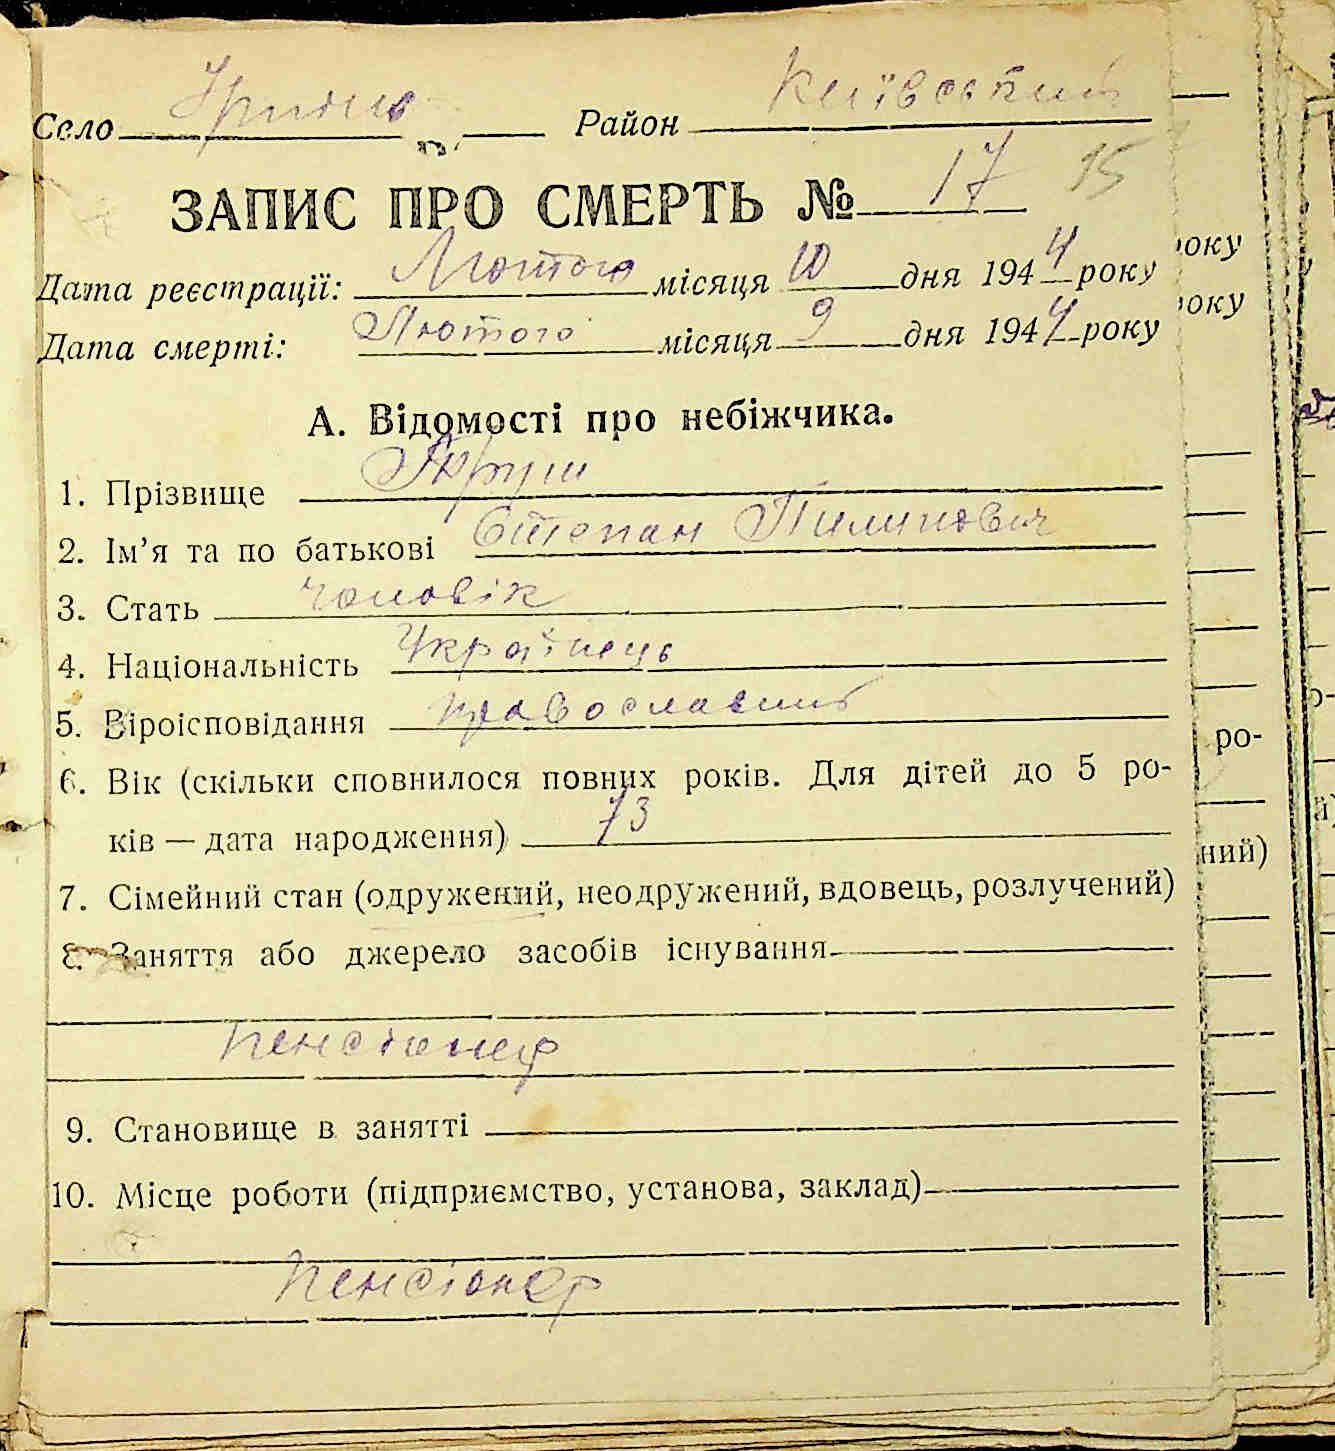 Село Ірпінь Район Київський
ЗАПИС ПРО СМЕРТЬ № 17 15
Дата реєстрації: Лютого місяця 10 дня 1944 року
Дата смерті: Лютого місяця 9 дня 1944 року
А. Відомості про небіжчика.
1. Прізвище
2. Ім’я та по батькові Степан Пилипович
3. Стать чоловік
4. Національність Українець
5. Віроісповідання православний
6. Вік (скільки сповнилося повних років. Для дітей до 5 ро-
ків — дата народження) 73
7. Сімейний стан (одружений, неодружений, вдовець, розлучений)
8. Заняття або джерело засобів існування
пенсіонер
9. Становище в занятті
10. Місце роботи (підприємство, установа, заклад)
пенсіонер
року
року
ро-
ний)